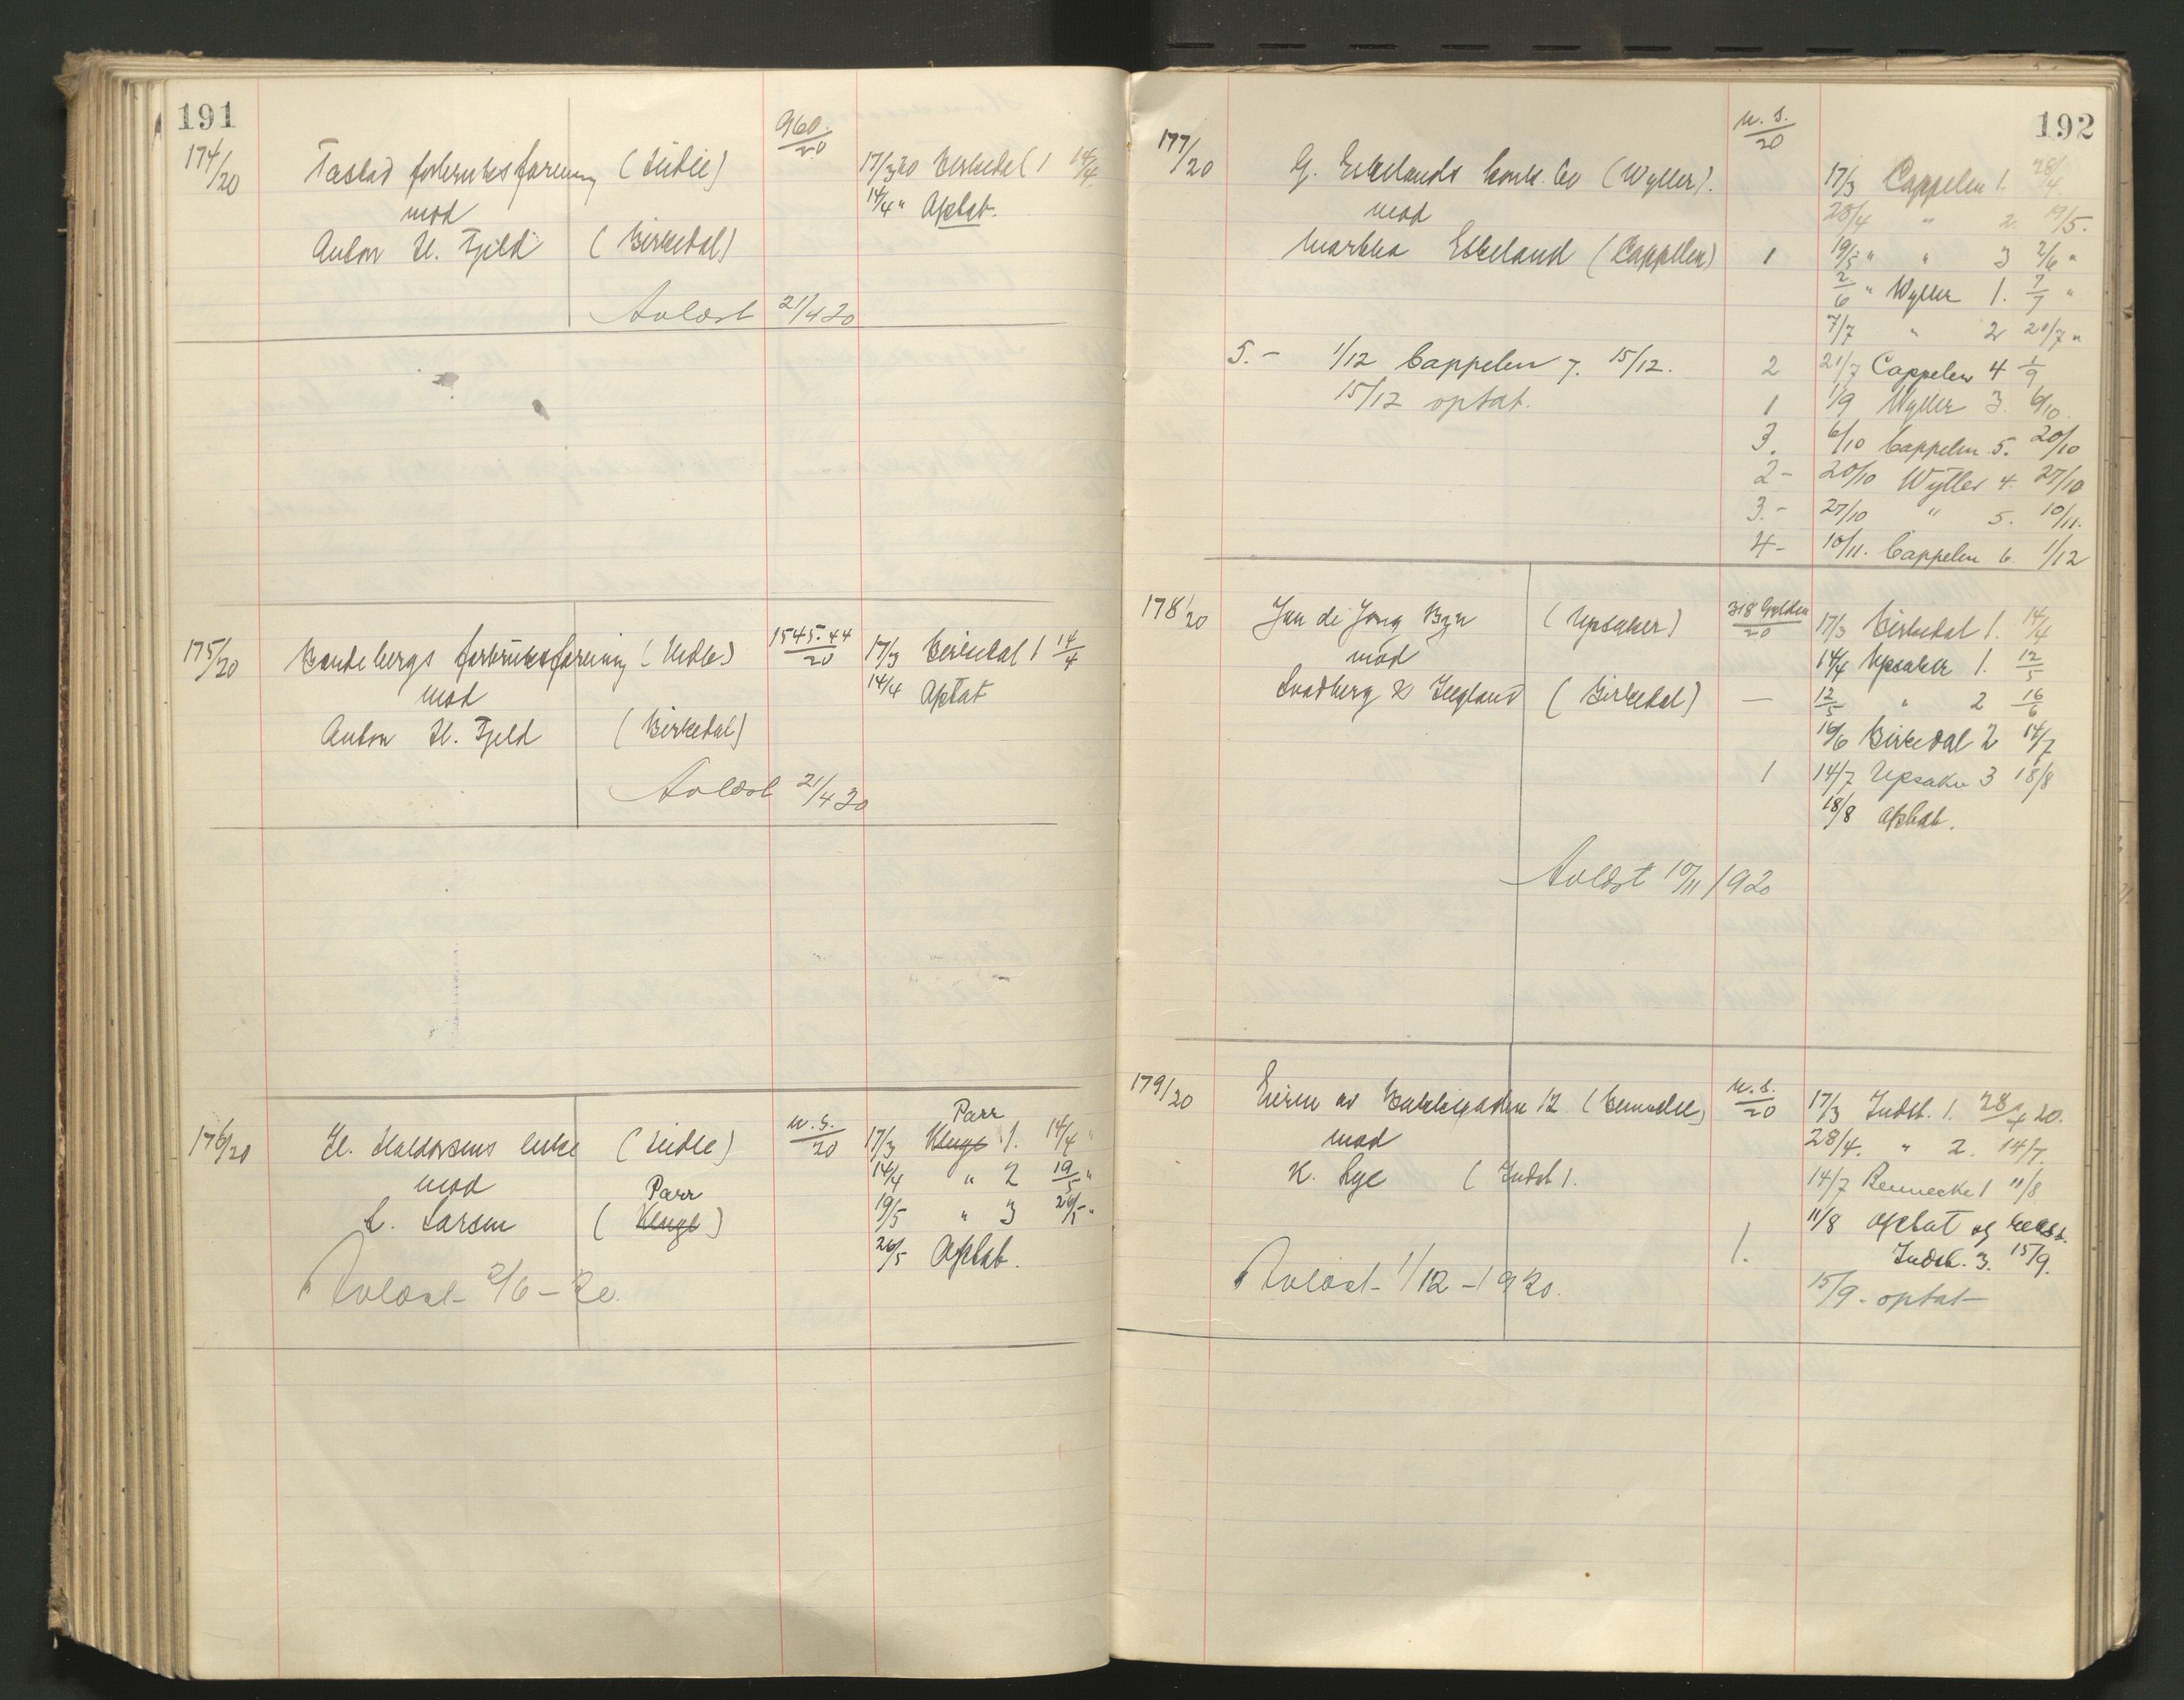 191
174/20 Tastad forbruksforening (Lidle) 960.-/20 17/3 20 Birkedal 1 14/4
mod 14/4 " Optat.
Anton H. Fjeld (Birkedal)
Avlæst 21/4 20
175/20 forbruksforening (Lidle) 1545.44/20 17/3 Birkedal 1 14/4
mod 14/4 Optat
Anton H. Fjeld (Birkedal)
Avlæst 21/4 20
Parr
176/20 H. Haldorsens enke (Lidle) u.s./20 17/3 Kluge 1. 14/4 "
mod 14/4 " 2 19/5 "
Parr
L. Larsen (Kluge) 19/5 " 3 26/5 "
26/5 Optat.
Avlæst 2/6-20.
192
177/20 G. Eskelands konk. bo (Wyller). u.s./20 17/3 Cappelen 1. 28/4
mod 28/4 " 2. 19/5.
Martha Eskeland (Cappelen) 1 19/5 " " 3 2/6 "
2/6 " Wyller 1. 7/7 "
7/7 " 2 21/7 "
5.- 1/12 Cappelen 7. 15/12. 2 21/7 Cappelen 4 1/9
15/12 optat. 1 1/9 Wyller 3. 6/10.
3. 6/10 Cappelen 5. 20/10
2- 20/10 Wyller 4. 27/10
3.- 27/10 " 5. 10/11.
4- 10/11. Cappelen 6. 1/12
178/20 Jan de Jong Bzn (Upsaker) 318 Gylden/20 17/3 Birkedal 1. 14/4
mod 14/4 Upsaker 1. 12/5
Svadberg & Legland (Birkedal) — 12/5 " 2 16/6
16/6 Birkedal 2 14/7
1 14/7 Upsaker 3 18/8
18/8 Optat.
Avlæst 10/11 1920
179/20 Eieren av Bakkegaden 12 (Bennecke) u.s./20 17/3 Indst. 1. 28/4 20.
mod 28/4. " 2. 14/7.
K. Lye (Indst). 14/7 Bennecke 1 11/8
11/8 Optat og
1. Indst. 3. 15/9.
Avlæst 1/12-1920. 15/9- optat-